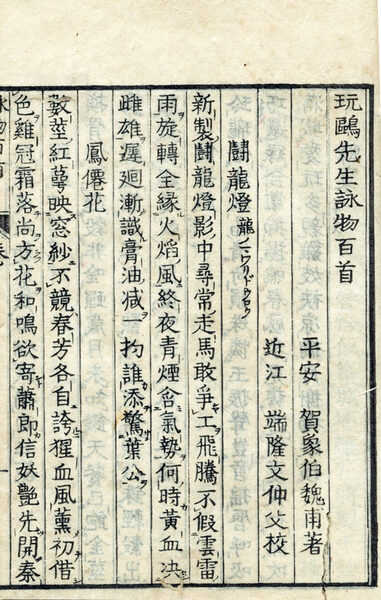 玩鷗先生詠物百首
平安 賀象伯魏甫著
近江 端隆文仲父校
鬪龍燈 龍ノマワリドウロウ
新製鬪龍燈影中尋常走馬敢爭工飛騰不假雲雷
雨旋轉全緣火焰風終夜青煙含氣勢何時黃血决
雌雄遲廻漸識膏油減一扚誰添驚葉公
鳳僊花
數莖紅萼映窓紗不競春芳各自誇猩血風薰初借
色雞冠霜落尚方花和鳴欲寄蕭郎信妖艷先開秦
詠物百首
卷
一